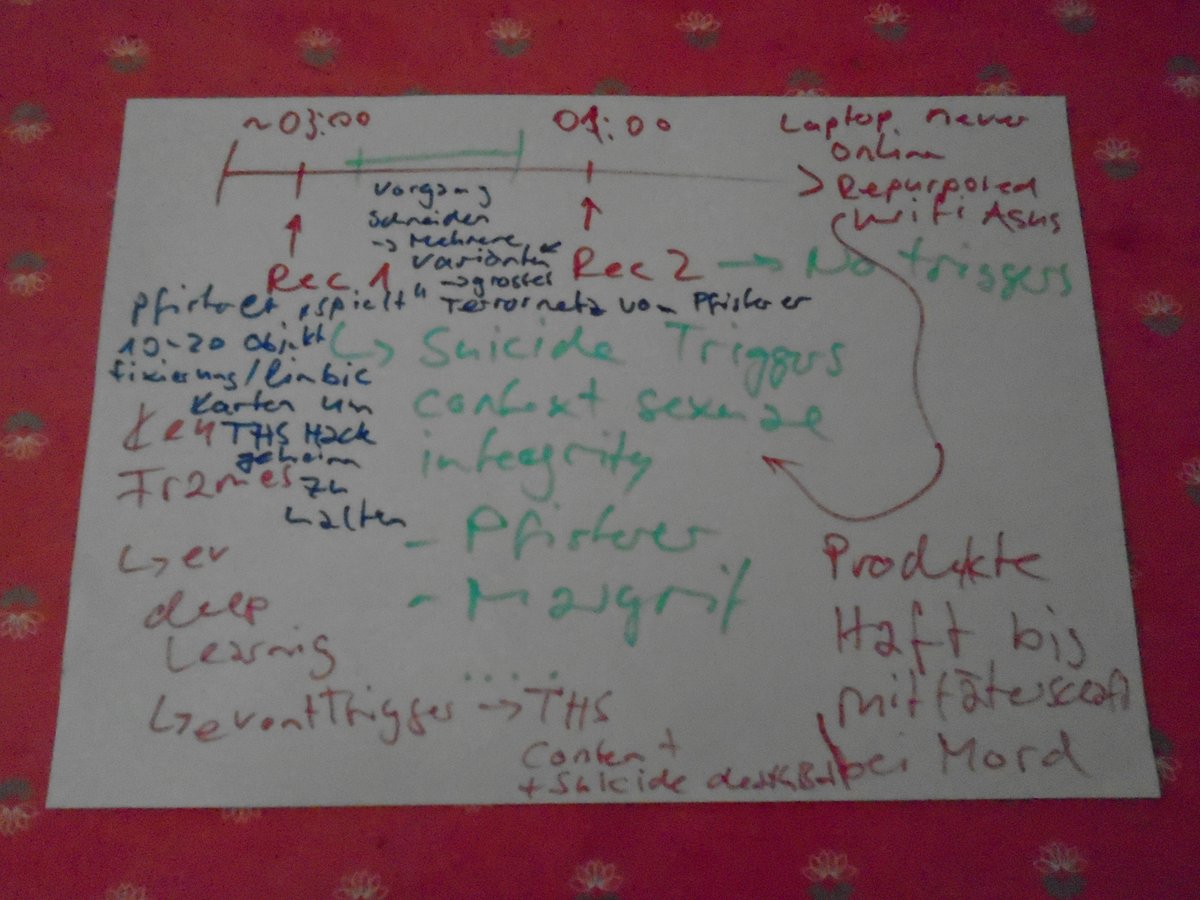 ~03:00
01:00
Laptop never
online
> Repurposed
Wifi ASUS
Vorgang
Schneiden
→ Mehrere
Varianten
→ grosses
Terrornetz vom Pfisterer
Rec 1
Rec 2 → No triggers
Pfisterer „spielt"
10-20 Objekt
fixierung/limbic
Karten um
THS Hack
geheim
zu
halten
↳ Suicide Triggers
context
integrity
- Pfisterer
- Margrit
.....
Key
Frames
↳ ev
deep
Learnig
↳ eventTrigger → THS
Content
+ Suicide
Produkte
Haft bis
Mittäterscaft
bei Mord